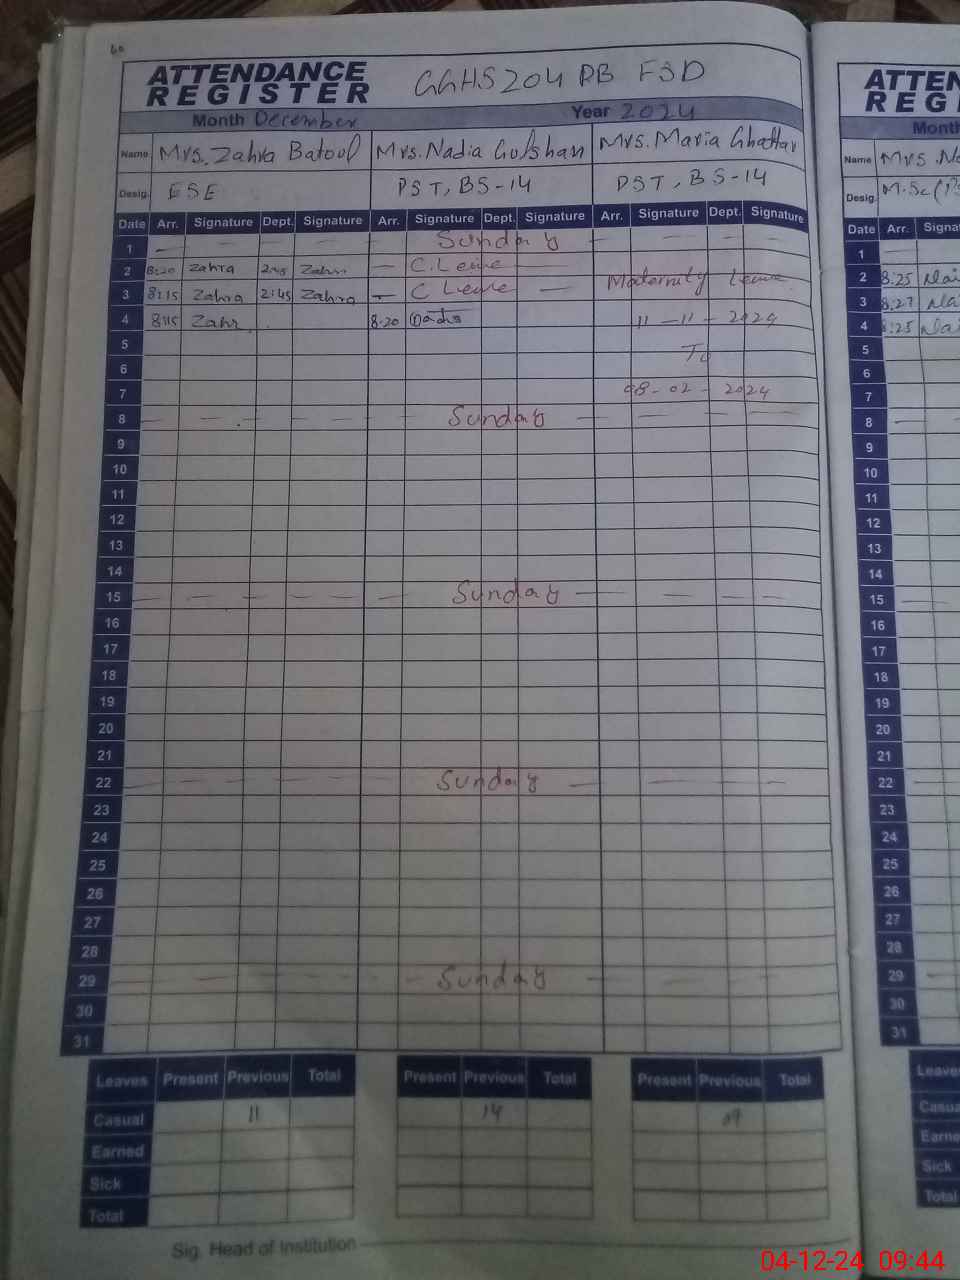 60
ATTENDANCE REGISTER GGHS 204 RB FSD
Month December Year 2024
Name Mrs. Zahra Batool Mrs. Nadia Gulshan Mrs. Maria Ghaffar
Desig. ESE PST, BS-14 PST, BS-14
Date Arr. Signature Dept. Signature Arr. Signature Dept. Signature Arr. Signature Dept. Signature
1 — — — — — Sunday — — — —
2 8:20 Zahra 2:45 Zahra — C. Leave —
3 8:15 Zahra 2:45 Zahra — C Leave — Maternity Leave
4 8:15 Zahr 8.20 11-11-2024
5 To
6
7 08-02-2024
8 — — — Sunday — — — —
9
10
11
12
13
14
15 — — — — — — Sunday — — — —
16
17
18
19
20
21
22 — — — — — — Sunday — — —
23
24
25
26
27
28
29 — — — — — — Sunday — — —
30
31
Leaves Present Previous Total Present Previous Total Present Previous Total
Casual 11 14 09
Earned
Sick
Total
Sig. Head of Institution
ATTEN
REG
Month
Name Mrs
Desig. M.Sc
Date Arr. Signa
1 —
2 8.25
3 8.27
4 8:25
5
6
7
8 —
9
10
11
12
13
14
15
16
17
18
19
20
21
22
23
24
25
26
27
28
29 —
30
31
Leave
Casua
Earne
Sick
Total
04-12-24 09:44